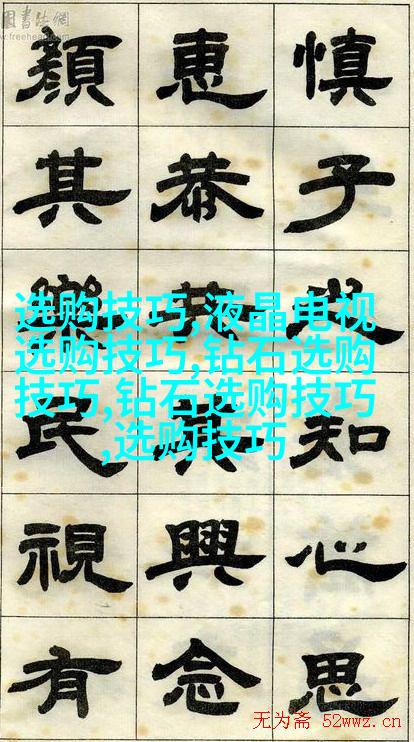 書法網
慎子知心思
惠恭興念
顏其民視有
选购技巧,液晶电视
选购技巧,钻石选购
技巧,钻石选购技巧
,选购技巧
无为斋 52wwz.cn